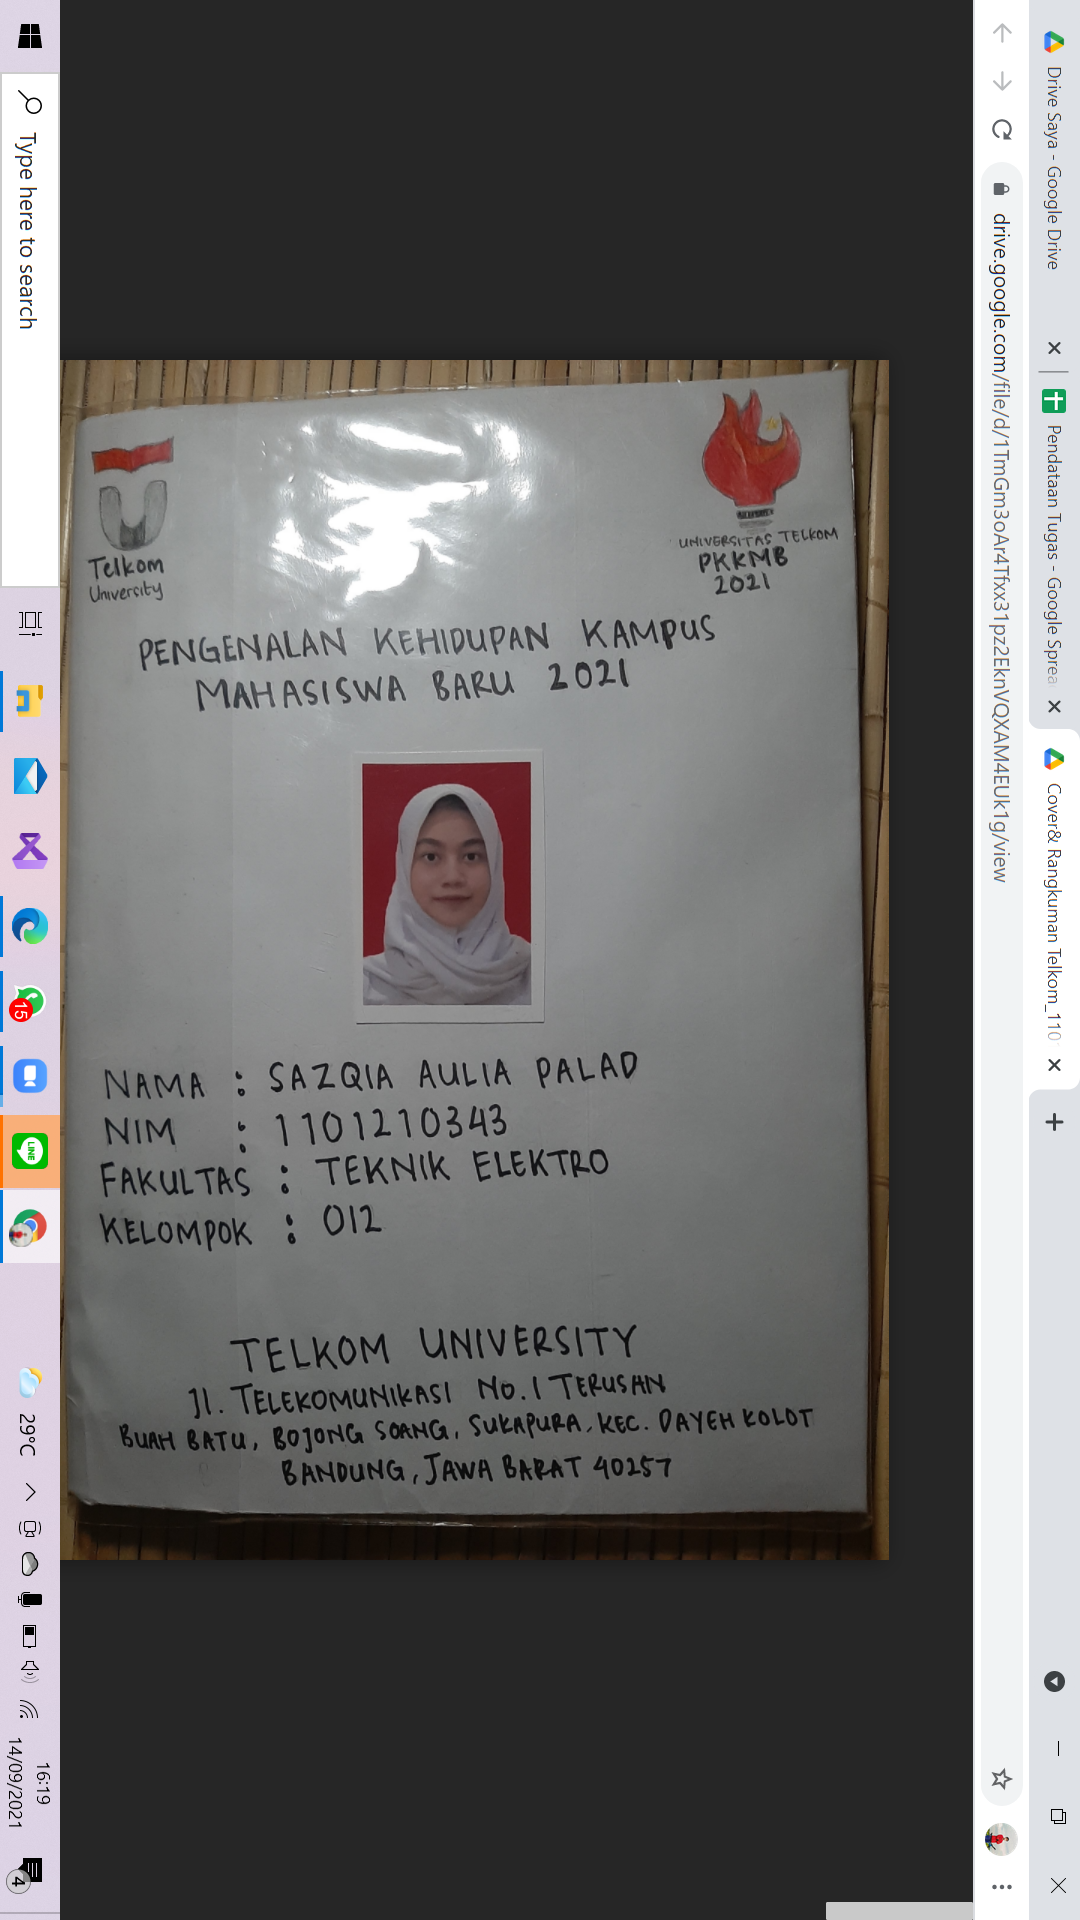 Drive Saya - Google Drive
Pendataan Tugas - Google Sprea
Cover& Rangkuman Telkom_110
drive.google.com/file/d/1TmGm3oAr4Tfxx31pz2EknVQXAM4EUk1g/view
Telkom
University
UNIVERSITAS TELKOM
PKKMB
2021
PENGENALAN KEHIDUPAN KAMPUS
MAHASISWA BARU 2021
NAMA : SAZQIA AULIA PALAD
NIM : 1101210343
FAKULTAS : TEKNIK ELEKTRO
KELOMPOK : 012
TELKOM UNIVERSITY
Jl. TELEKOMUNIKASI No.1 TERUSAN
BUAH BATU, BOJONG SOANG, SUKAPURA, KEC. DAYEH KOLOT
BANDUNG, JAWA BARAT 40257
Type here to search
15
LINE
29°C
16:19
14/09/2021
4